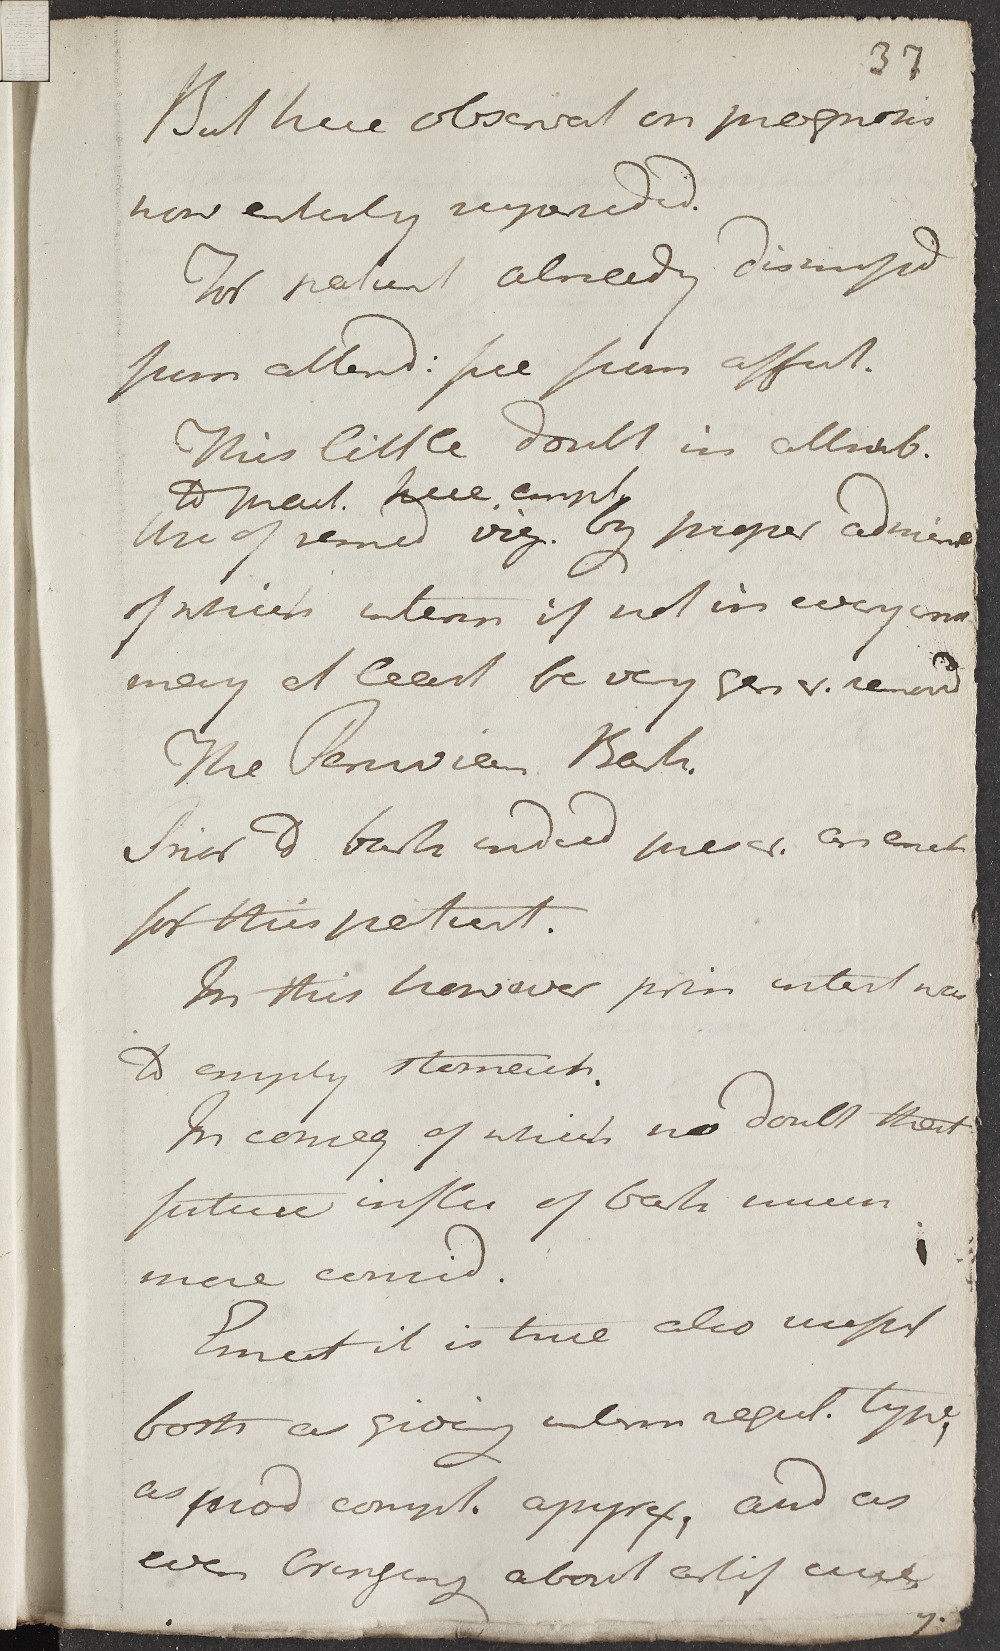 37
But here observat on prognosis
now entirely superseded.
For patient already dismissd
from attend: free from affect.
This little doubt in attrib.
to pract. here empl.
Use of remed viz. by proper admin
of which interm if not in every case
may at least be very gener. removd
The Peruvian Bark.
Prior to bark indeed prescr. an emet
for this patient.
In this however prin intent was
to empty stomach.
In conseq of which no doubt that
future influ of bark much
more consid.
Emet it is true also usefull
both as giving interm regul. type,
as prod compl. apyrex, and as
even bringing about artif crises
y.